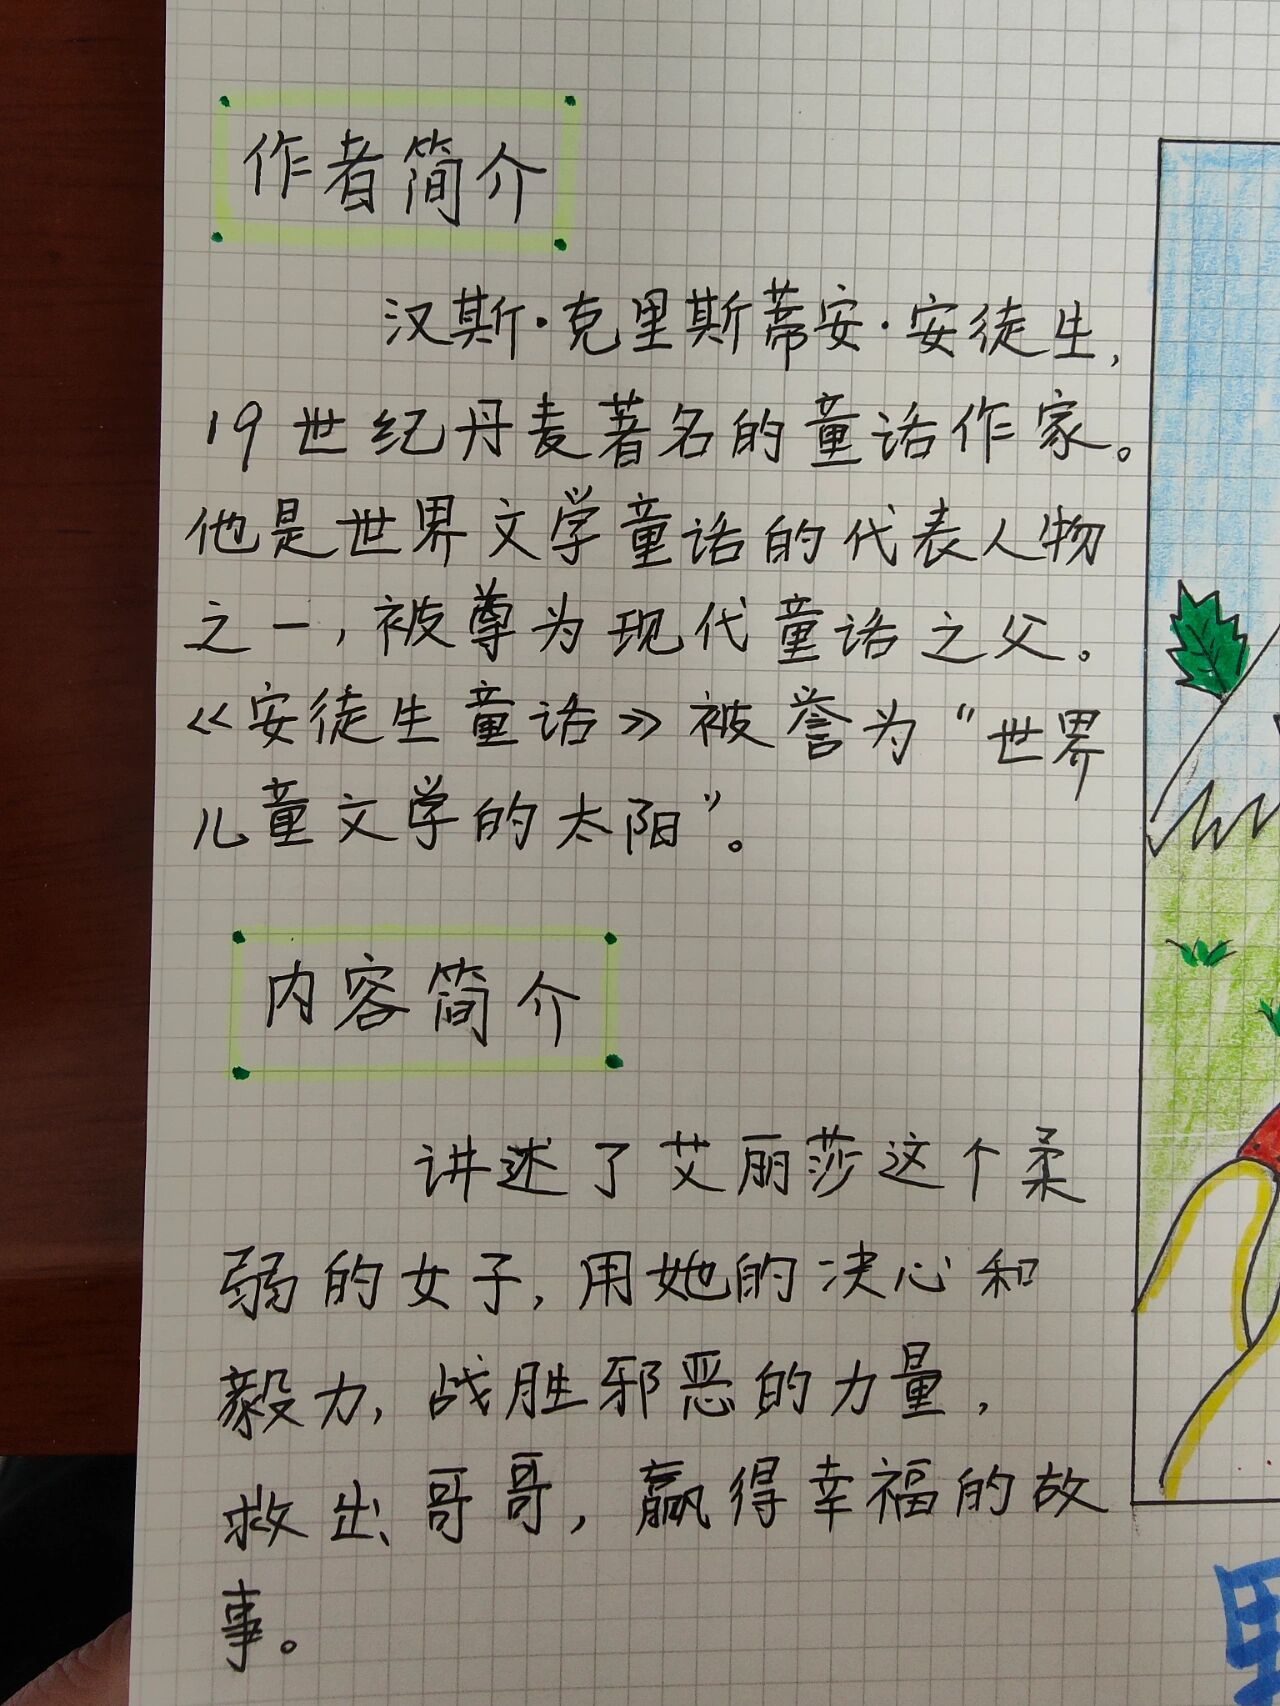 作者简介
汉斯·克里斯蒂安·安徒生,
19世纪丹麦著名的童话作家。
他是世界文学童话的代表人物
之一,被尊为现代童话之父。
《安徒生童话》被誉为“世界
儿童文学的太阳”。
内容简介
讲述了艾丽莎这个柔
弱的女子,用她的决心和
毅力,战胜邪恶的力量,
救出哥哥,赢得幸福的故
事。